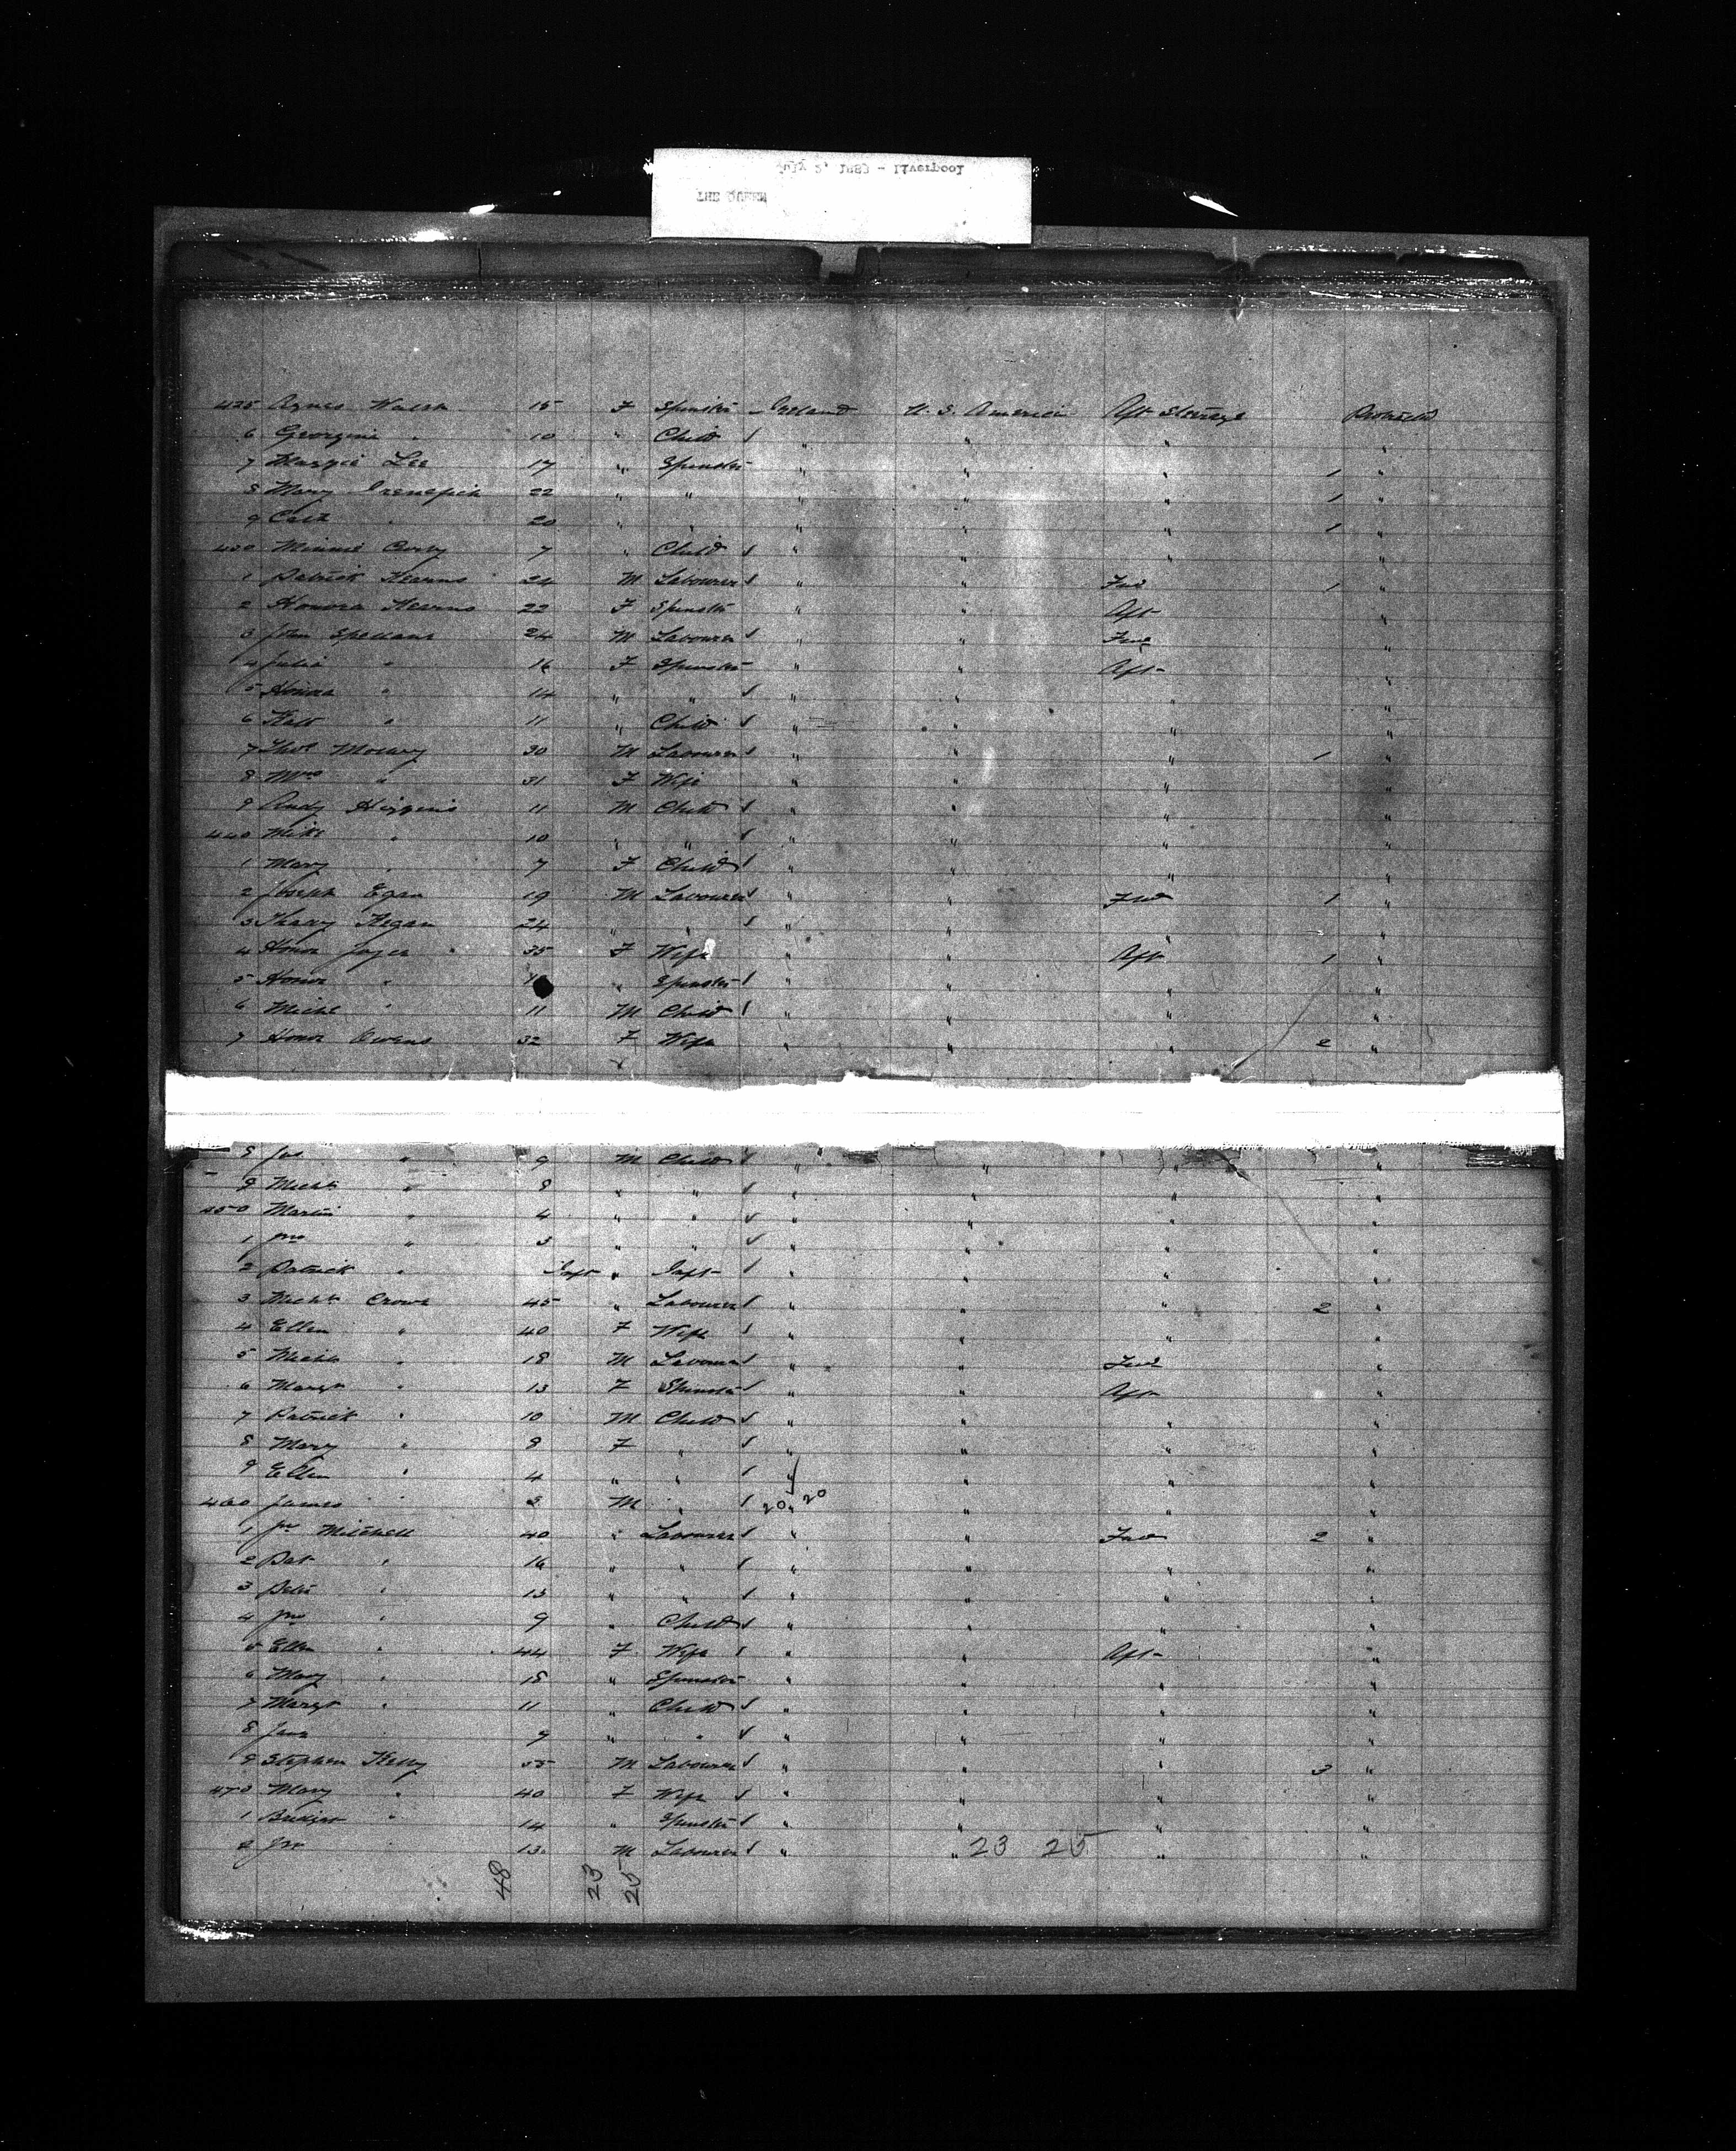 July 2, 1883 - Liverpool
THE QUEEN
425 Agnes Walsh 15 F Spinster Ireland U. S. America Aft Steerage Protracted
6 Georgina " 10 " Child " " " "
7 Margie Lee 17 " Spinster " " " 1 "
8 Mary 22 " " " " " 1 "
9 Cath " 20 " " " " " 1 "
430 Minnie 7 " Child " " " "
1 Patrick Kearns 24 M Labourer " " Fwd 1 "
2 Honora Kearns 22 F Spinster " " Aft "
3 John Spellane 24 M Labourer " " Fwd "
4 Julia " 16 F Spinster " " Aft "
5 Honora " 14 " " " " " "
6 Kate " 11 " Child " " " "
7 Thos 30 M Labourer " " " 1 "
8 Mrs " 31 F Wife " " " "
9 Andy Higgins 11 M Child " " " "
440 Mike " 10 " " " " " "
1 Mary " 7 F Child " " " "
2 Joseph Egan 19 M Labourer " " Fwd 1 "
3 Kegan 24 " " " " " "
4 Honor Joyce 35 F Wife " " Aft 1 "
5 Honor " " Spinster " " " "
6 Michl " 11 M Child " " " "
7 Honor Owens 32 F Wife " " " 2 "
8 Jas " 9 M Child " " " "
9 Michl " 8 " " " " " "
450 Martin " 4 " " " " " "
1 Jno " 3 " " " " " "
2 Patrick " Inft " Inft " " " "
3 Michl Crowe 45 " Labourer " " " 2 "
4 Ellen " 40 F Wife " " " "
5 Michl " 18 M Labourer " " Fwd "
6 Margt " 13 F Spinster " " Aft "
7 Patrick " 10 M Child " " " "
8 Mary " 8 F " " " " "
9 Ellen " 4 " " " " " "
460 James " 2 M " 20 " 20 " " "
1 Jno Mitchell 40 " Labourer " " Fwd 2 "
2 Pat " 16 " " " " " "
3 " 13 " " " " " "
4 Jno " 9 " Child " " " "
5 Ellen " 44 F Wife " " Aft "
6 Mary " 18 " Spinster " " " "
7 Margt " 11 " Child " " " "
8 Jane " 9 " " " " " "
9 Stephen Kelly 55 M Labourer " " " 3 "
470 Mary " 40 F Wife " " " "
1 Bridget " 14 " Spinster " " " "
2 Jno " 13 M Labourer " " 23 25 " "
48 23 25